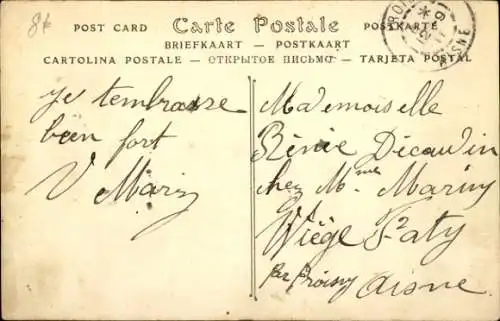 8f
POST CARD Carte Postale POSTKARTE
BRIEFKAART — POSTKAART
CARTOLINA POSTALE — ОТКРЫТОЕ ПИСЬМО — TARJETA POSTAL
AISNE
je t'embrasse
bien fort
V Marin
Mademoiselle
Rénée Décauvin
chez Mme Mariny
Wiège Faty
par Proisy Aisne